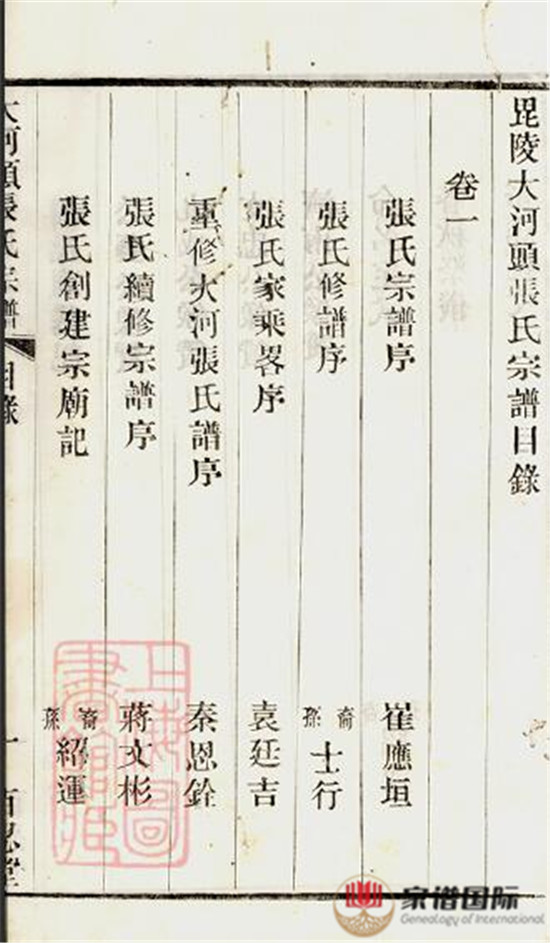 毘陵大河頭張氏宗譜目錄
卷一
張氏宗譜序 崔應垣
張氏修譜序 裔孫士行
張氏家乘畧序 袁廷吉
重修大河張氏譜序 秦恩銓
張氏續修宗譜序 蔣文彬
張氏創建宗廟記 裔孫紹運
大河頭張氏宗譜 目錄 一 百忍堂
上海圖書館藏
家谱国际
Genealogy of International